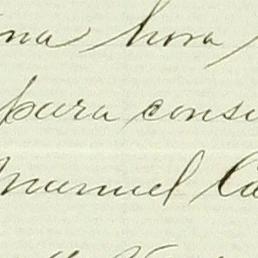 una hora
para cons
Manuel Ca